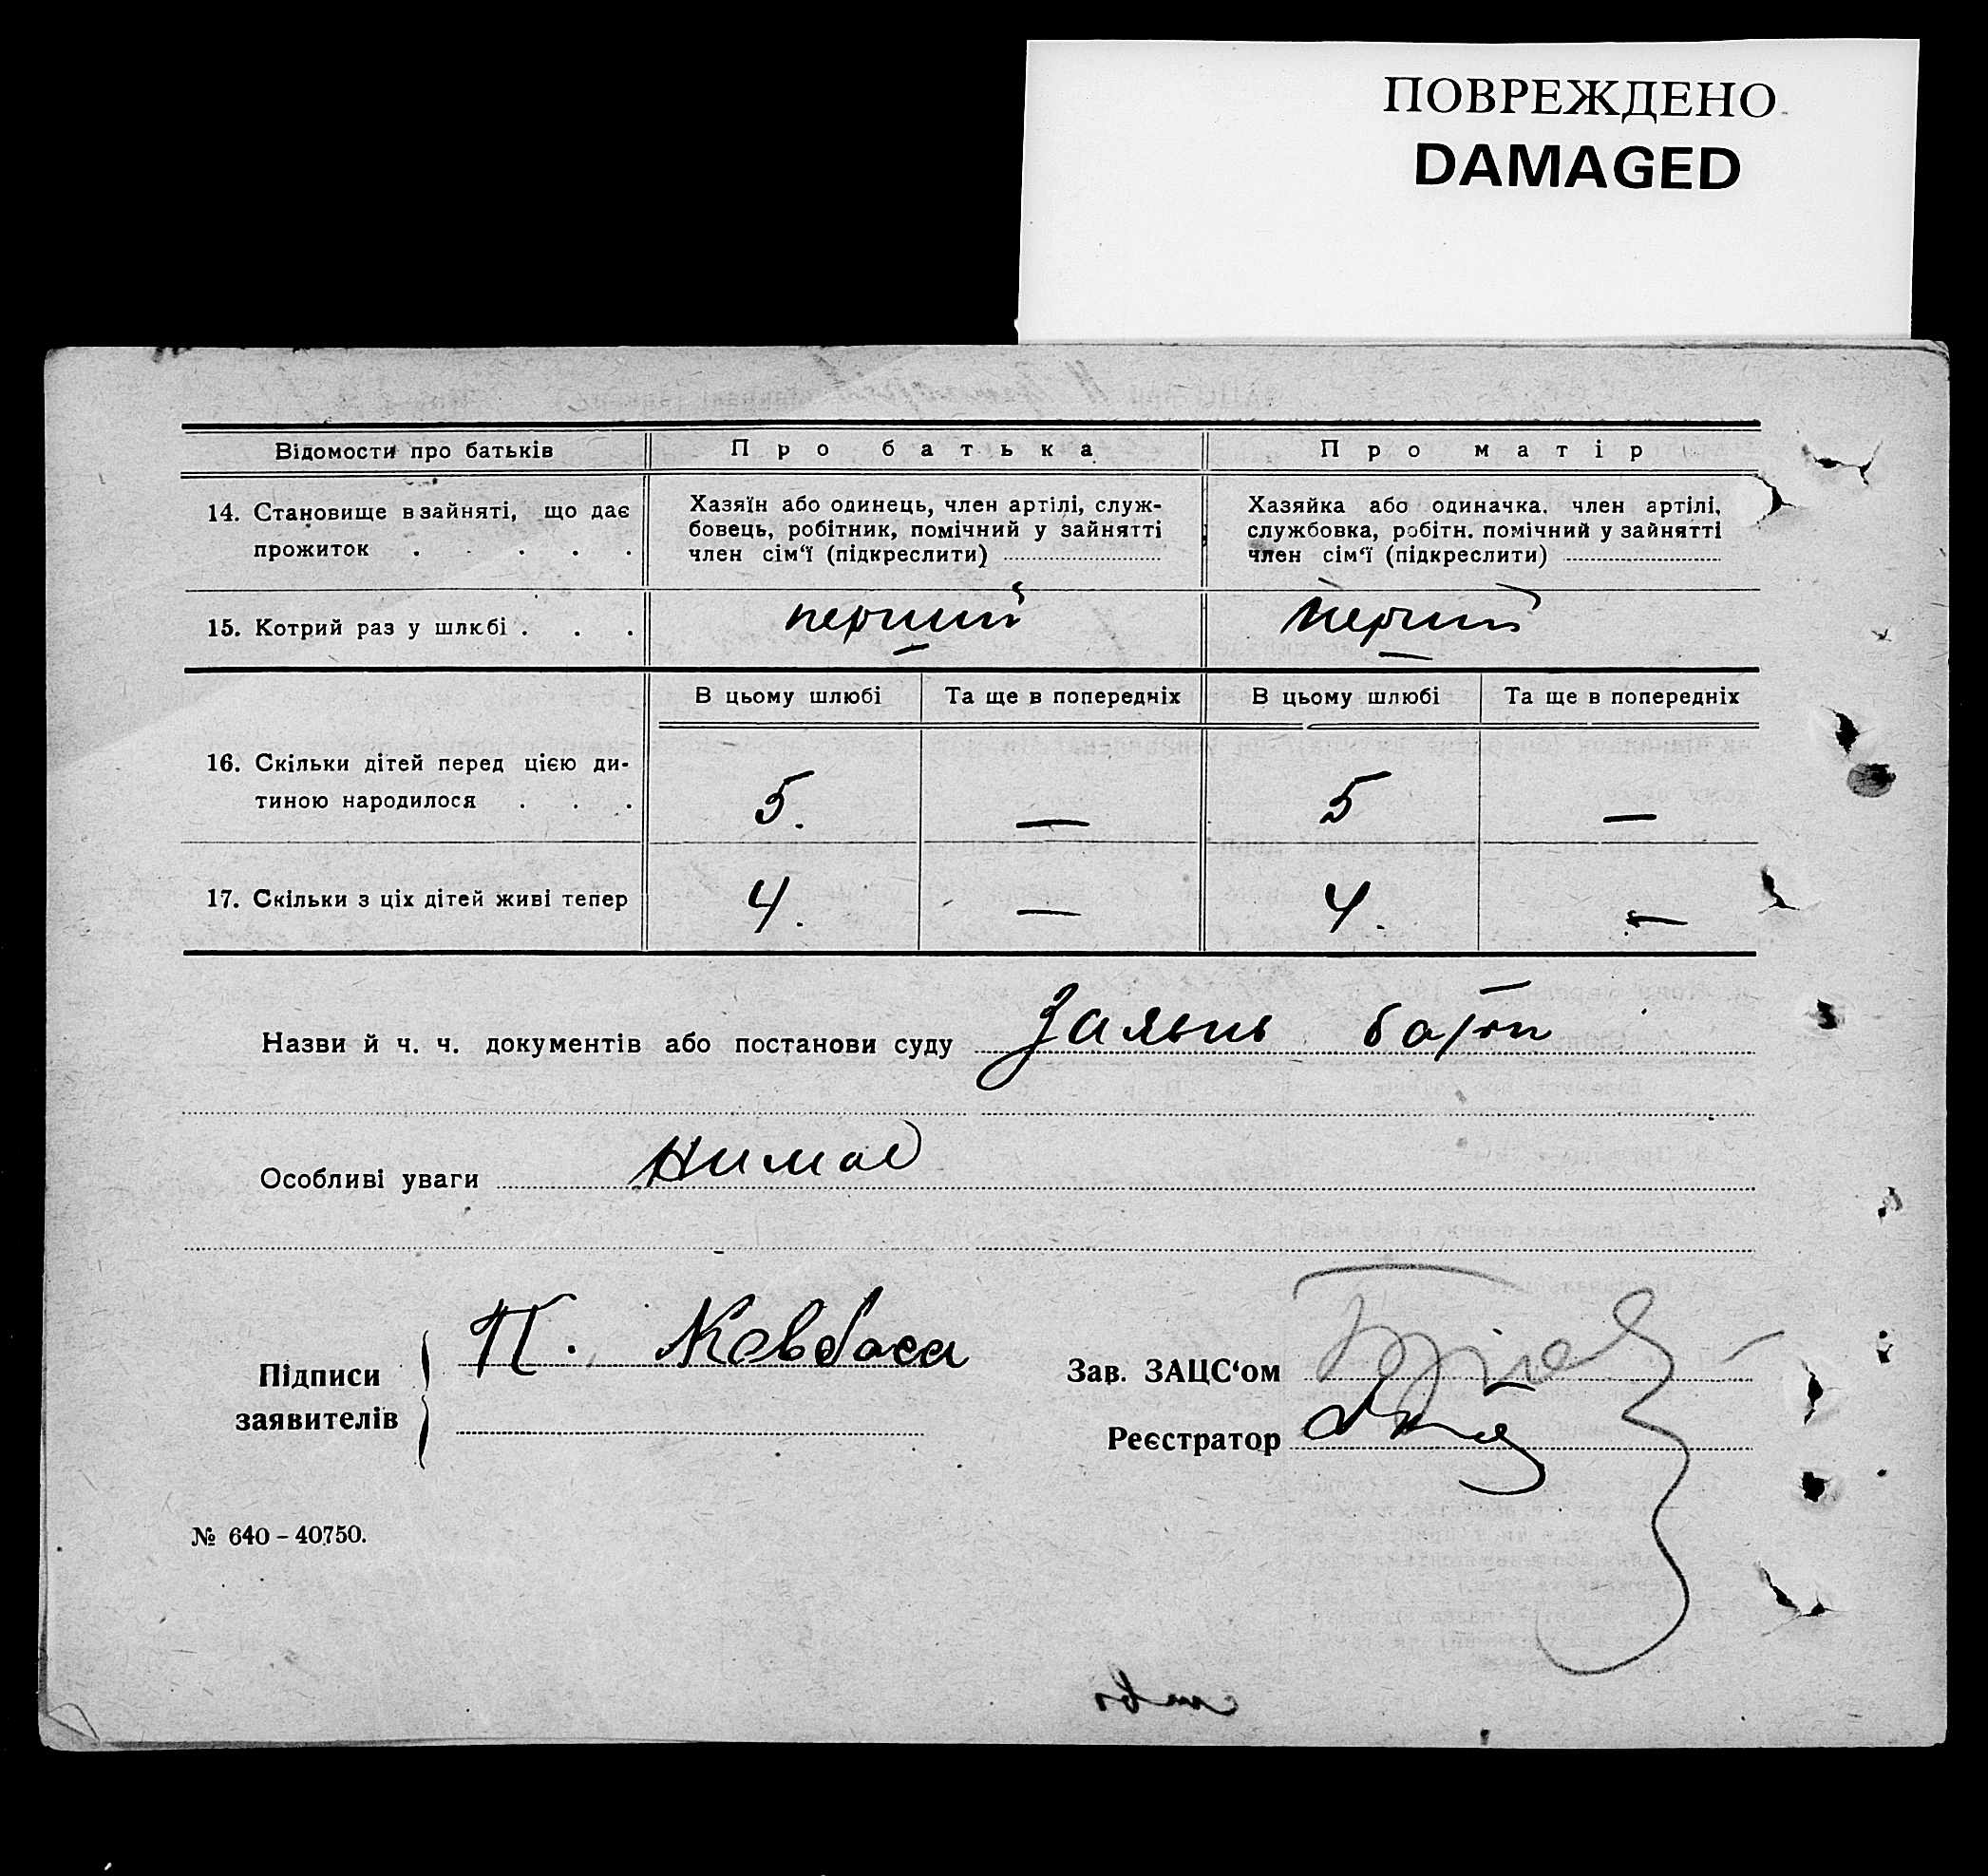 ПОВРЕЖДЕНО
DAMAGED
Відомости про батьків
Про батька
Про матір
14. Становище в зайняті, що дає прожиток . . . . .
Хазяїн або одинець, член артілі, служ-
бовець, робітник, помічний у зайнятті
член сім‘ї (підкреслити)
Хазяйка або одиначка, член артілі,
службовка, робітн. помічний у зайнятті
член сім‘ї (підкреслити)
15. Котрий раз у шлюбі . . .
перший
перший
В цьому шлюбі
Та ще в попередніх
В цьому шлюбі
Та ще в попередніх
16. Скільки дітей перед цією ди-
тиною народилося . . .
5.
—
5
—
17. Скільки з ціх дітей живі тепер
4.
—
4.
—
Назви й ч. ч. документів або постанови суду Заявив
Особливі уваги Нимає
Підписи
заявителів
П. Ковбаса
Зав. ЗАЦС‘ом
Реєстратор
№ 640 – 40750.